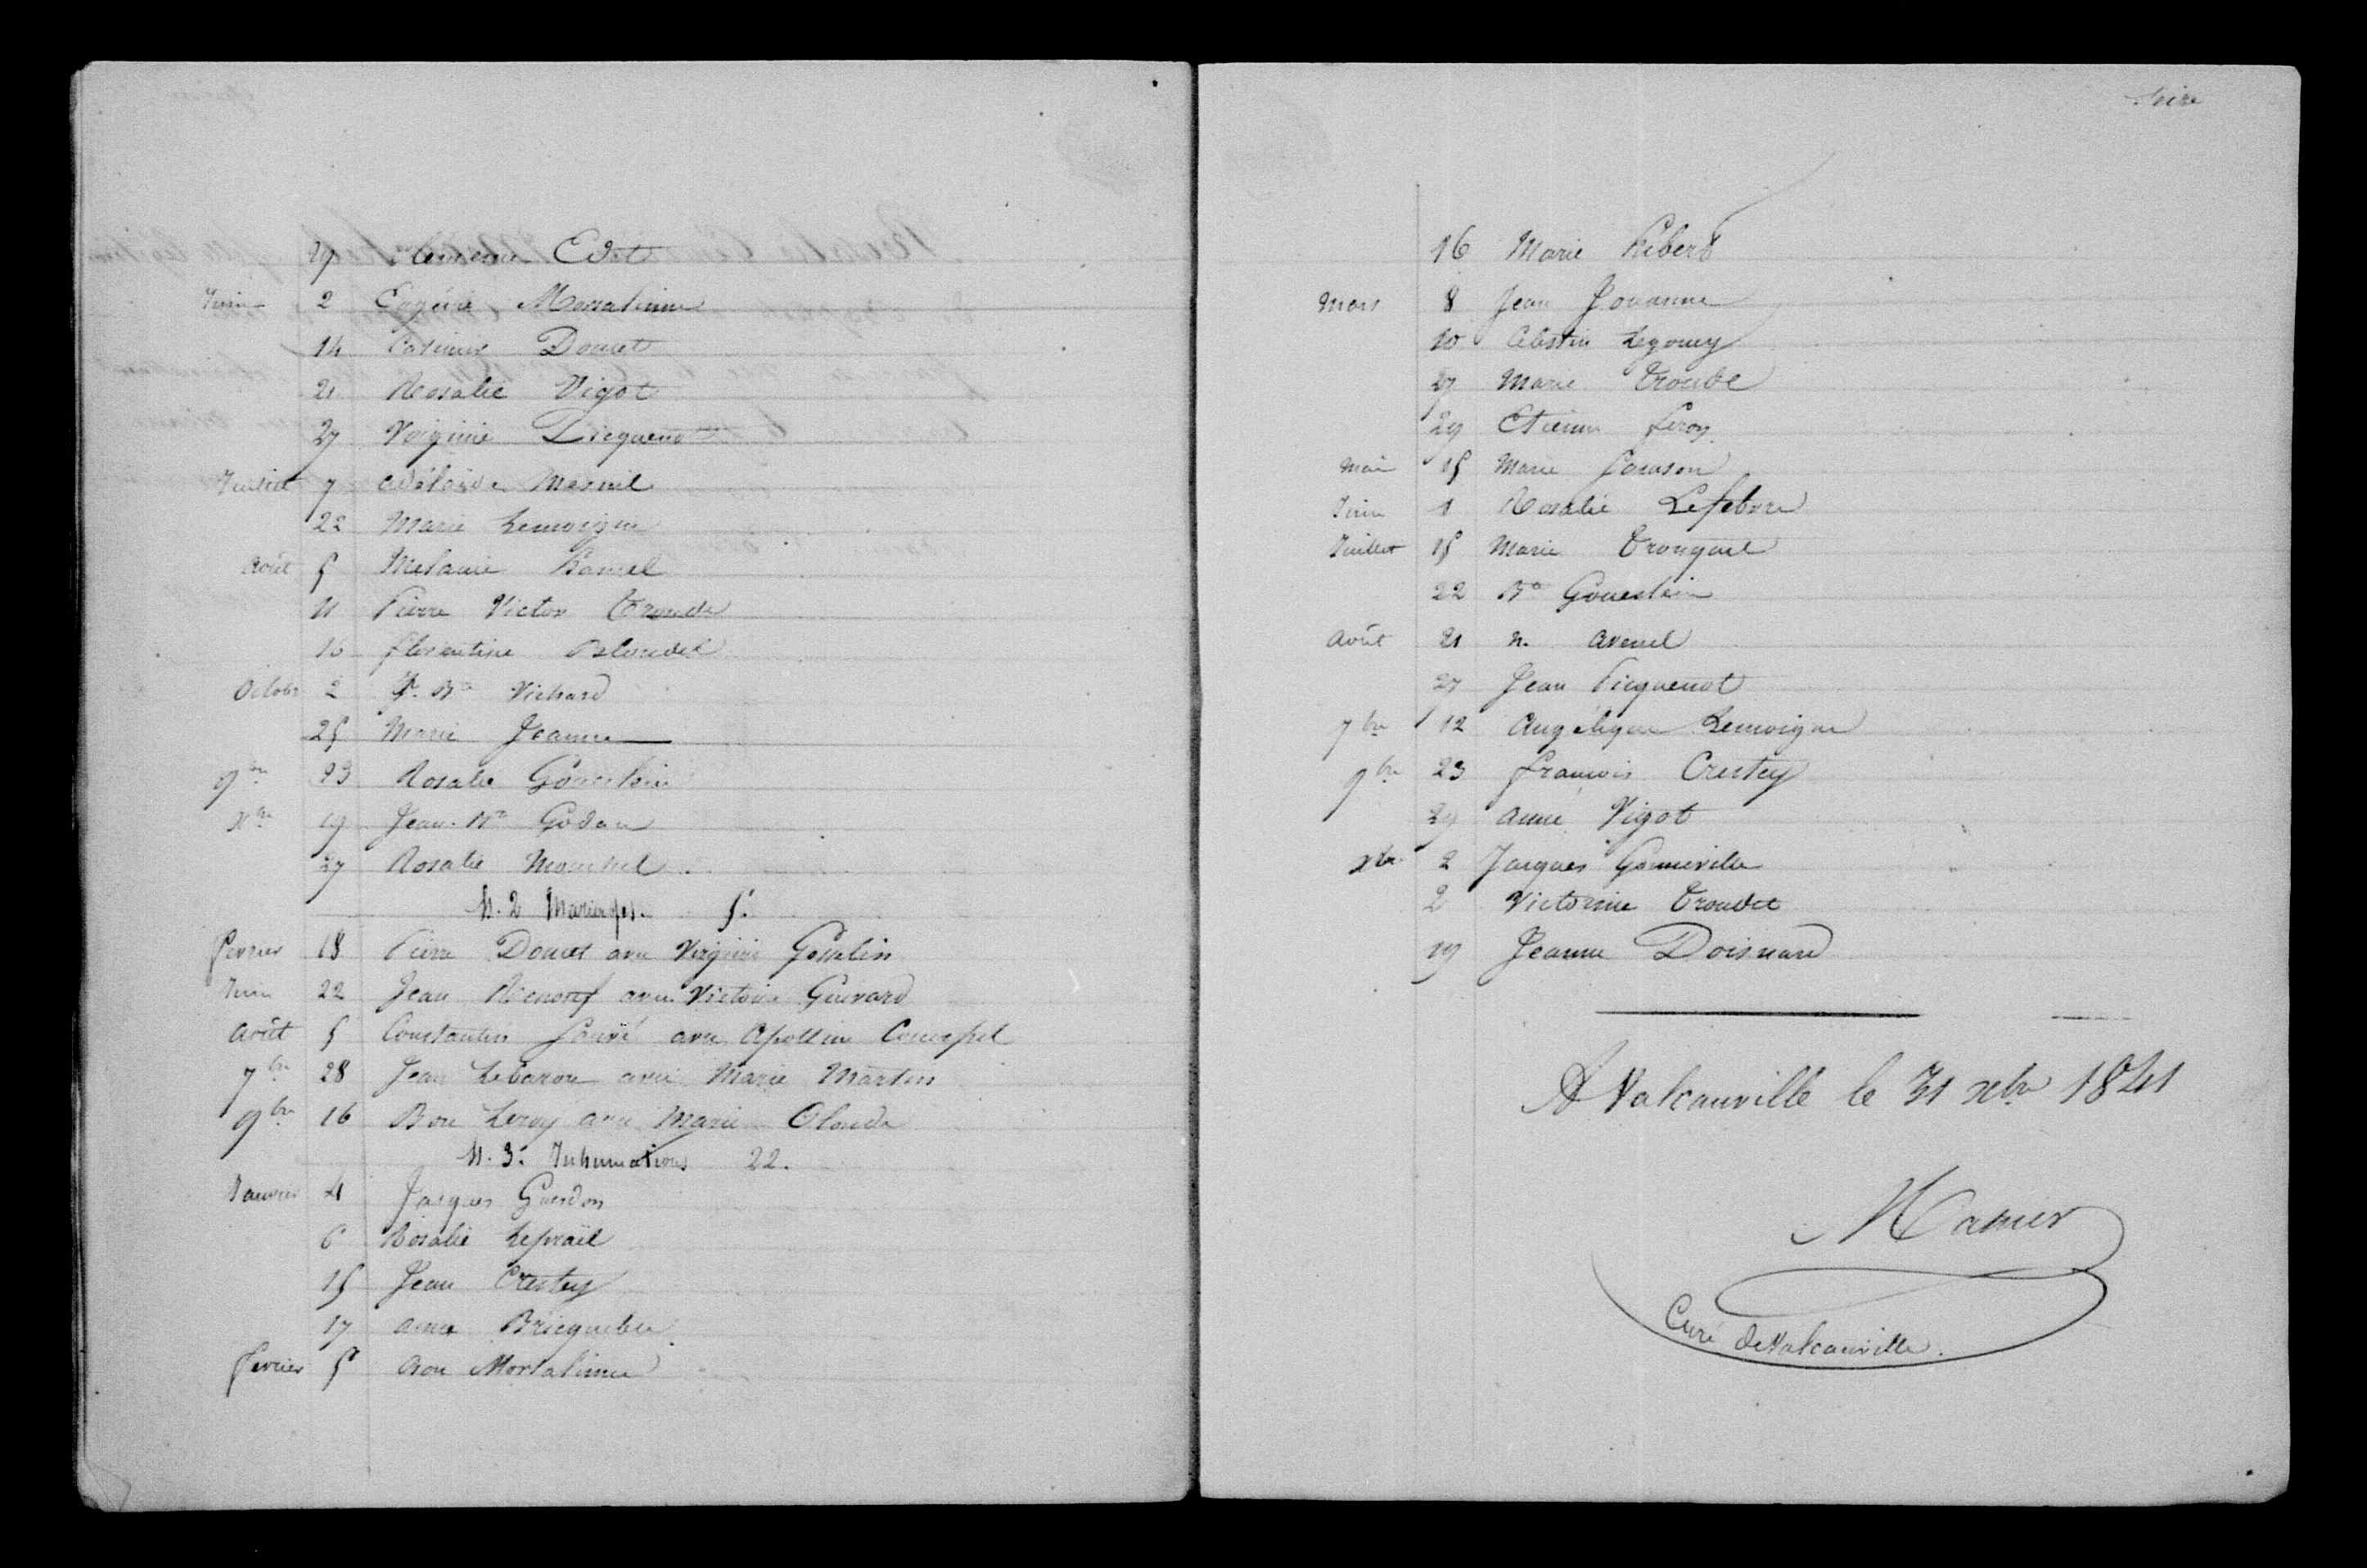 29 Clémence Edet
Juin 2 Eugénie Mossalinne
14 Casimir Doucet
21 Rosalie Vigot
27 Virginie Picquenot
Juillet 7 Adélaïde Mesnil
22 Marie Lemoigne
Août 5 Melanie Hamel
11 Pierre Victor Troude
16 florentine Blondel
Octobre 2 Bte Vichard
25 Marie Jeanne
9bre 23 Rosalie Gouestin
Xbre 19 Jean Bte Godan
27 Rosalie Mouchel
N. 2 Mariages. 5.
fevrier 18 Pierre Doucet avec Virginie Gosselin
Juin 22 Jean avec Victoire Guerard
Août 5 Constantin avec Apolline
7bre 28 Jean Lebaron avec Marie Martin
9bre 16 Bon Leroy avec Marie
N. 3. Inhumations 22.
Janvier 4 Jacques Guerdon
6 Rosalie Leprael
15 Jean Crestey
17 Anne
fevrier 5 Mossalinne
16 Marie hébert
Mars 8 Jean Jouanne
10 Célestin Legouey
27 Marie Troude
29 Etienne Leroy
Mai 15 Marie
Juin 1 Rosalie Lefebvre
Juillet 15 Marie
22 Bte Gouestin
Août 21 n. avenel
27 Jean Picquenot
7bre 12 Angélique Lemoigne
9bre 23 françois Crestey
29 anne Vigot
xbre 2 Jacques Gonneville
2 Victorine Troude
19 Jeanne Doisnard
A Valcanville le 31 xbre 1841
Curé de Valcanville.